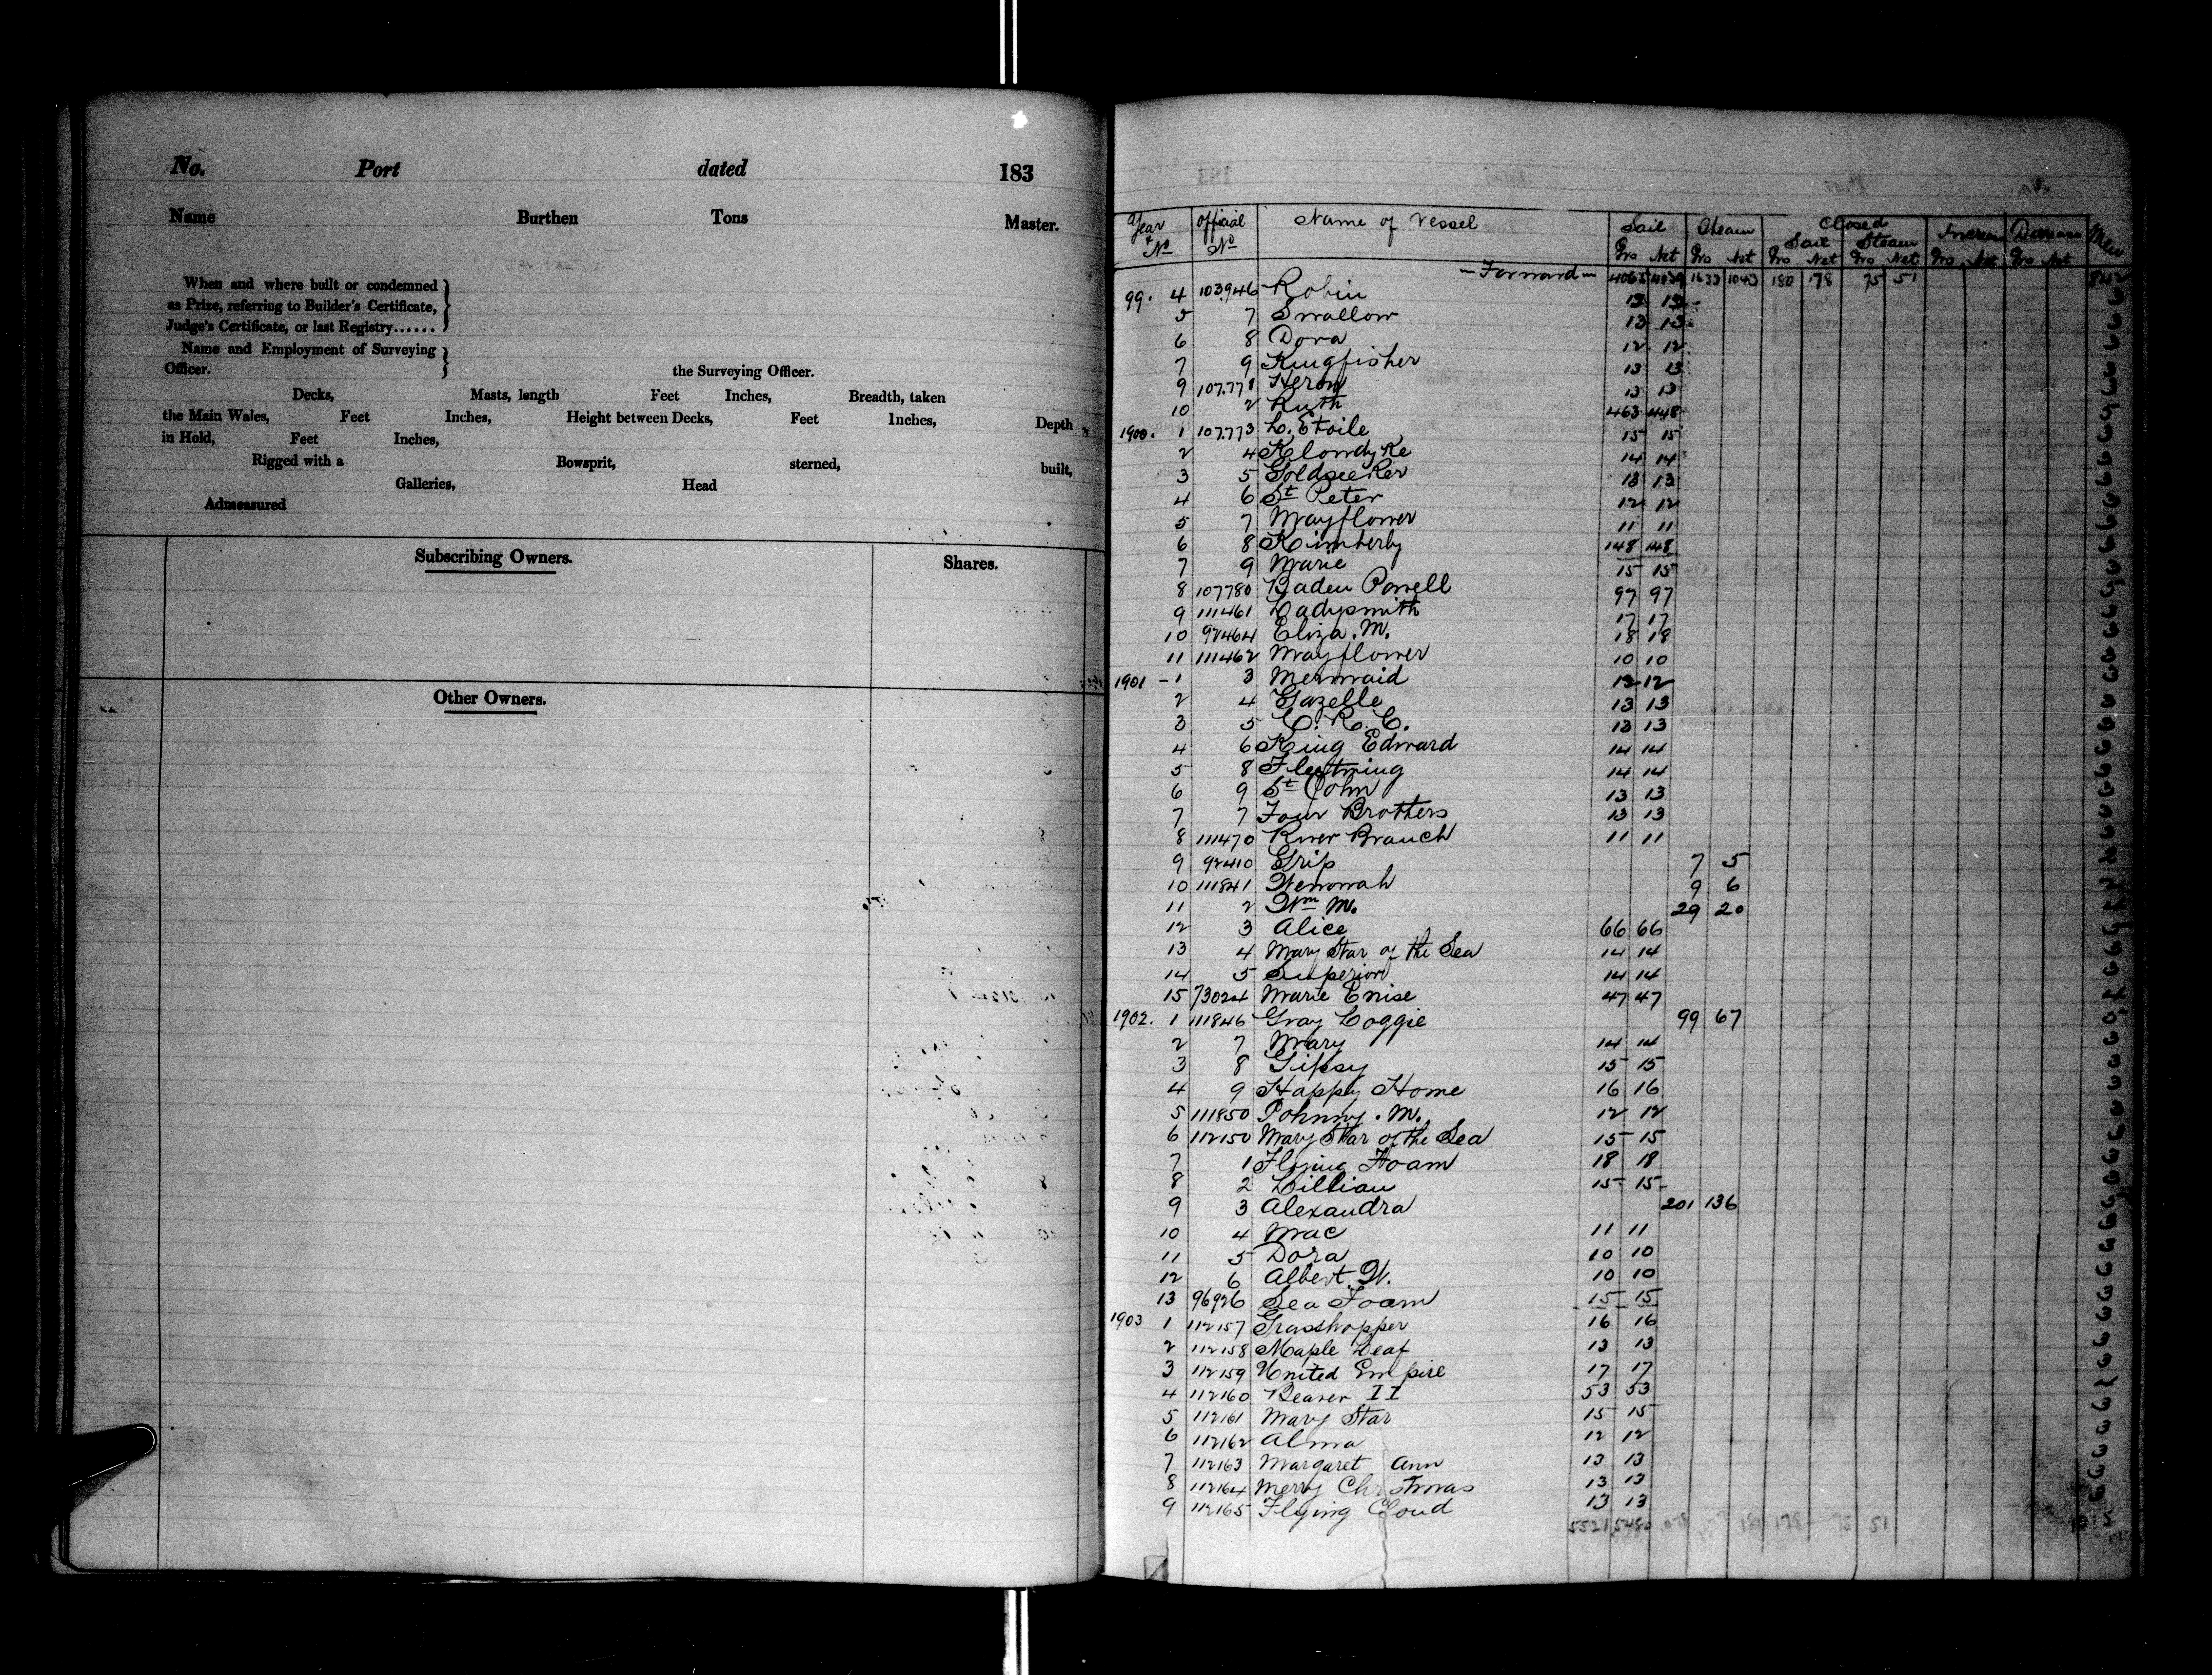 No. Port dated 183
Name Burthen Tons Master.
When and where built or condemned
as Prize, referring to Builder's Certificate,
Judge's Certificate, or last Registry......
Name and Employment of Surveying
Officer. the Surveying Officer.
Decks, Masts, length Feet Inches, Breadth, taken
the Main Wales, Feet Inches, Height between Decks, Feet Inches, Depth
in Hold, Feet Inches,
Rigged with a Bowsprit, sterned, built,
Galleries, Head
Admeasured
Subscribing Owners. Shares.
Other Owners.
Year & No Official No Name of Vessel Sail Steam Closed Increase Decrease Men
Sail Steam
Gro Net Gro Net Gro Net Gro Net Gro Net Gro Net
Forward 4065 4029 1633 1043 180 178 75 51
99. 4 103946 Robin 13 13
5 7 Swallow 13 13
6 8 Dora 12 12
7 9 Kingfisher 13 13
9 107.771 Heron 13 13
10 2 Ruth 463 448
1900. 1 107.773 L. Etoile 15 15
2 4 Klondyke 14 14
3 5 Goldseeker 13 13
4 6 St Peter 12 12
5 7 Mayflower 11 11
6 8 Kimberly 148 148
7 9 Marie 15 15
8 107780 Baden Powell 97 97
9 111461 Ladysmith 17 17
10 92464 Eliza. M. 18 18
11 111462 Mayflower 10 10
1901 - 1 3 Mermaid 12 12
2 4 Gazelle 13 13
3 5 C. R. C. 13 13
4 6 King Edward 14 14
5 8 Fleetwing 14 14
6 9 St John 13 13
7 7 Four Brothers 13 13
8 111470 River Branch 11 11
9 92410 Grip 7 5
10 111841 Wenonah 9 6
11 2 Wm M. 29 20
12 3 Alice 66 66
13 4 Mary Star of the Sea 14 14
14 5 Superior 14 14
15 73024 Marie Enise 47 47
1902. 1 111846 Gray Loggie 99 67
2 7 Mary 14 14
3 8 Gipsy 15 15
4 9 Happy Home 16 16
5 111850 Johnny. M. 12 12
6 112150 Mary Star of the Sea 15 15
7 1 Flying Foam 18 18
8 2 Lillian 15 15
9 3 Alexandra 201 136
10 4 Mac 11 11
11 5 Dora 10 10
12 6 Albert. W. 10 10
13 96926 Sea Foam 15 15
1903 1 112157 Grasshopper 16 16
2 112158 Maple Leaf 13 13
3 112159 United Empire 17 17
4 112160 Beaver II 53 53
5 112161 Mary Star 15 15
6 112162 Alma 12 12
7 112163 Margaret Ann 13 13
8 112164 Merry Christmas 13 13
9 112165 Flying Cloud 13 13
5521 5480 178 51